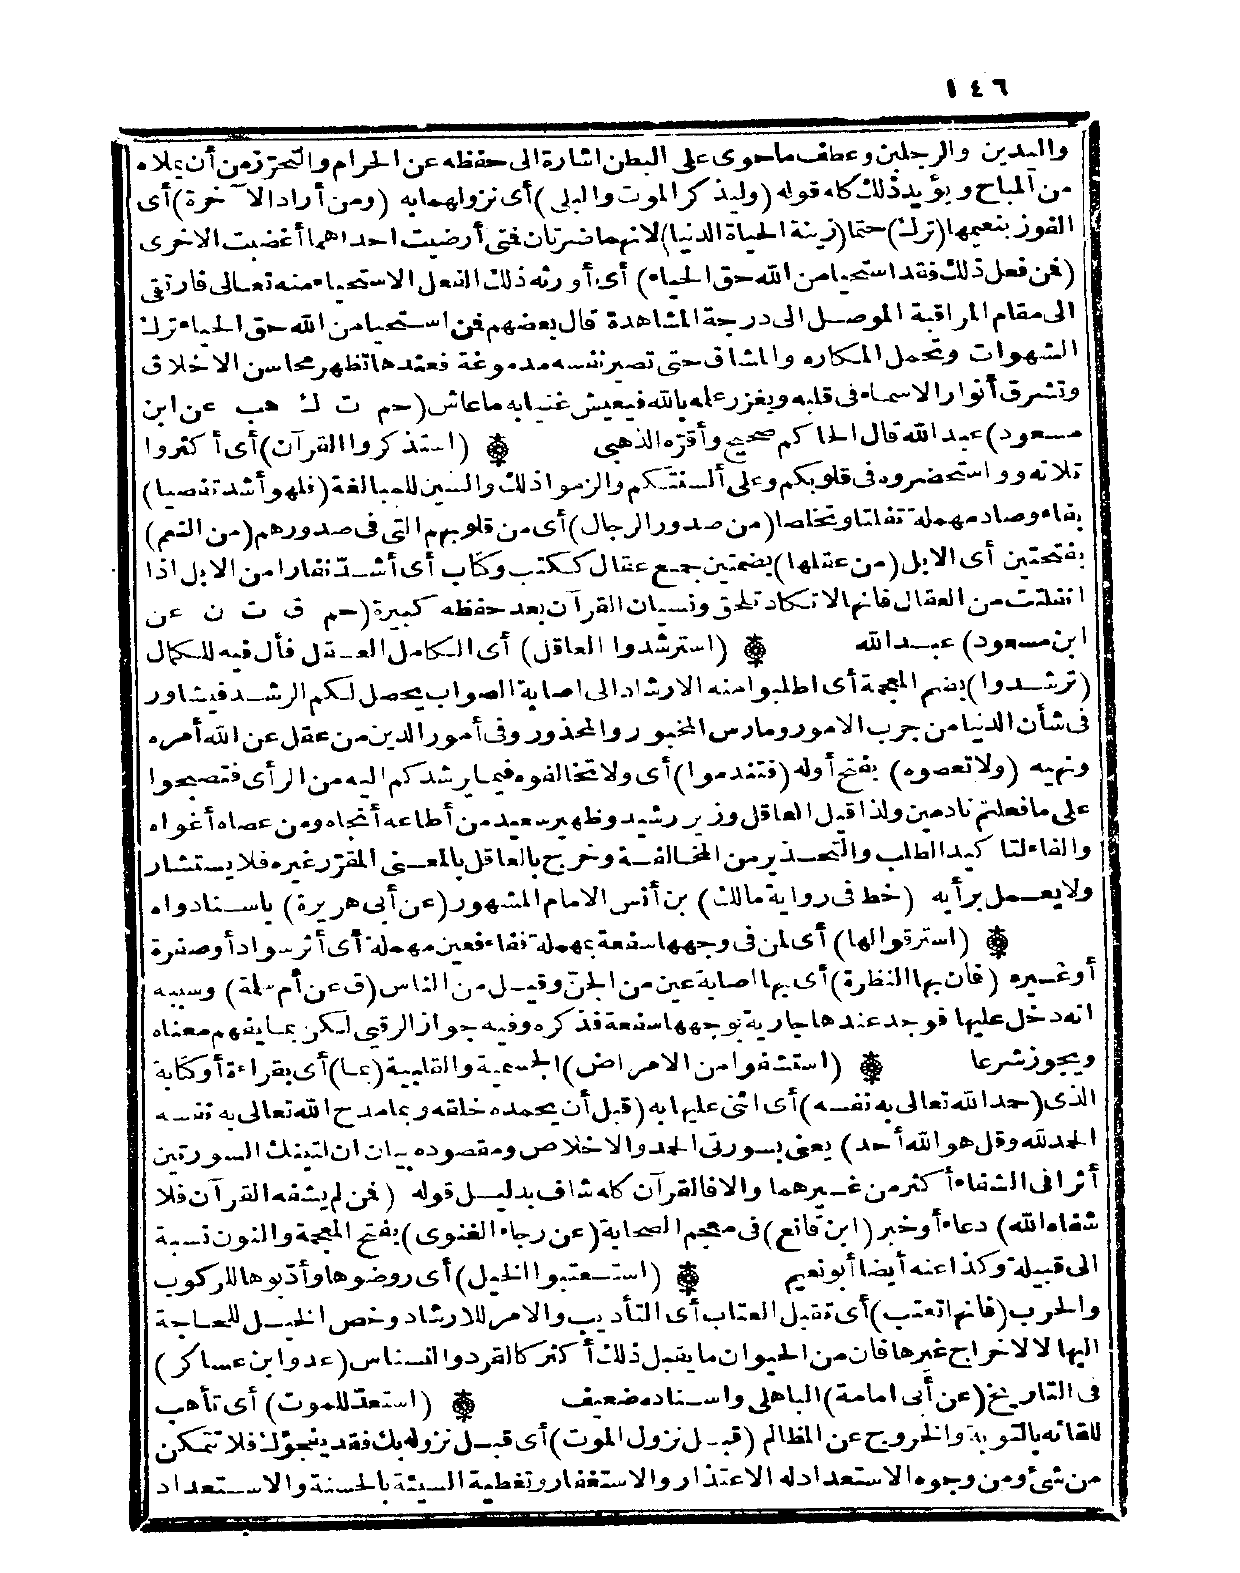 ١٤٦
واليدين والرجلين وعطف ما حوى على البطن اشارة الى حفظه عن الحرام والتحرز من أن يملأه
من المباح ويؤيد ذلك كله قوله (وليذكر الموت والبلى) أى نزولهما به (ومن أراد الآخرة) أى
الفوز بنعيمها (ترك) حتما (زينة الحياة الدنيا) لانهما ضرتان فتى أرضيت احداهما أغضبت الاخرى
(فمن فعل ذلك فقد استحيا من الله حق الحياء) أى أورثه ذلك الفعل الاستحياء منه تعالى فارتقى
الى مقام المراقبة الموصل الى درجة المشاهدة قال بعضهم فمن استحيا من الله حق الحياء ترك
الشهوات وتحمل المكاره والمشاق حتى تصير نفسه مدموغة فعندها تظهر محاسن الاخلاق
وتشرق أنوار الاسماء فى قلبه ويغزر علمه بالله فيعيش غنيا به ما عاش (حم ت ك هب عن ابن
مسعود) عبد الله قال الحاكم صحيح وأقره الذهبى ۞ (استذكروا القرآن) أى أكثروا
تلاوته واستحضروه فى قلوبكم وعلى ألسنتكم والزموا ذلك والسين للمبالغة (فلهو أشد تفصيا)
بفاء وصاد مهملة تفلتا وتخلصا (من صدور الرجال) أى من قلوبهم التى فى صدورهم (من النعم)
بفتحتين أى الابل (من عقلها) بضمتين جمع عقال ككتب وكتاب أى أشد نفارا من الابل اذا
انفلتت من العقال فانها لا تكاد تلحق ونسيان القرآن بعد حفظه كبيرة (حم ق ت ن عن
ابن مسعود) عبد الله ۞ (استرشدوا العاقل) أى الكامل العقل فأل فيه للكمال
(ترشدوا) بضم المعجمة أى اطلبوا منه الارشاد الى اصابة الصواب يحصل لكم الرشد فيشاور
فى شأن الدنيا من جرب الامور ومارس المخبور والمحذور وفى أمور الدين من عقل عن الله أمره
ونهيه (ولا تعصوه) بفتح أوله (فتندموا) أى ولا تخالفوه فيما يرشدكم اليه من الرأى فتصبحوا
على ما فعلتم نادمين ولذا قيل العاقل وزير رشيد وظهير سعيد من أطاعه أنجاه ومن عصاه أغواه
والفاء لتأكيد الطلب والتحذير من المخالفة وخرج بالعاقل بالمعنى المقرر غيره فلا يستشار
ولا يعمل برأيه (خط فى رواية مالك) بن أنس الامام المشهور (عن أبى هريرة) باسناد واه
۞ (استرقوا لها) أى لمن فى وجهها سفعة بمهملة ففاء فعين مهملة أى أثر سواد أو صفرة
أو غيره (فان بها النظرة) أى بها اصابة عين من الجن وقيل من الناس (ق عن أم سلمة) وسببه
انه دخل عليها فوجد عندها جارية بوجهها سفعة فذكره وفيه جواز الرقى لكن بما يفهم معناه
ويجوز شرعا ۞ (استشفوا من الامراض) الجسمية والقلبية (بما) أى بقراءة أو كتابة
الذى (حمد الله تعالى به نفسه) أى اثنى عليها به (قبل أن يحمده خلقه وبما مدح الله تعالى به نفسه
الحمد لله وقل هو الله أحد) يعنى بسورتى الحمد والاخلاص ومقصوده بيان ان لتينك السورتين
أثرا فى الشفاء أكثر من غيرهما والا فالقرآن كله شاف بدليل قوله (فمن لم يشفه القرآن فلا
شفاه الله) دعاء أو خبر (ابن قانع) فى معجم الصحابة (عن رجاء الغنوى) بفتح المعجمة والنون نسبة
الى قبيلة وكذا عنه أيضا أبو نعيم ۞ (استعتبوا الخيل) أى روضوها وأدبوها للركوب
والحرب (فانها تعتب) أى تقبل العتاب أى التأديب والامر للارشاد وخص الخيل للحاجة
اليها لا لاخراج غيرها فان من الحيوان ما يقبل ذلك أكثر كالقرد والنسناس (عد وابن عساكر)
فى التاريخ (عن أبى امامة) الباهلى واسناده ضعيف ۞ (استعد للموت) أى تأهب
للقائه بالتوبة والخروج عن المظالم (قبل نزول الموت) أى قبل نزوله بك فقد يفجؤك فلا تتمكن
من شئ ومن وجوه الاستعداد له الاعتذار والاستغفار وتغطية السيئة بالحسنة والاستعداد